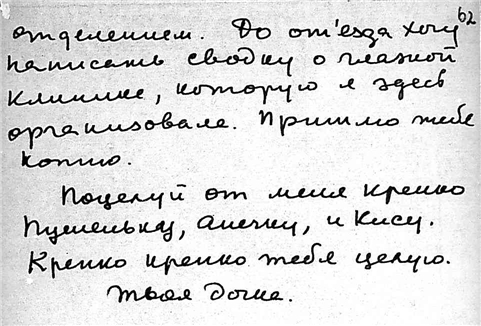 62
отделением. До от'езда хочу
написать сводку о глазной
клинике, которую я здесь
организовала. Пришлю тебе
копию.
Поцелуй от меня крепко
Анечку, и Кису.
Крепко крепко тебя целую.
Твоя Дочка.